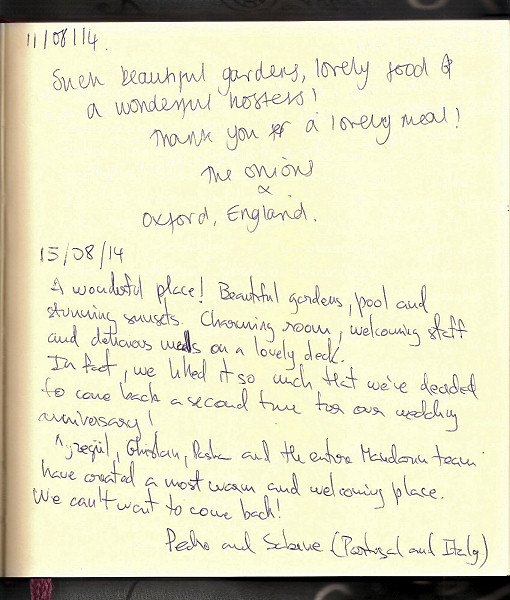 11/08/14.
Such beautiful gardens, lovely food &
a wonderful hostess!
Thank you for a lovely meal!
The Onions
x
Oxford, England.
15/08/14
A wonderful place! Beautiful gardens, pool and
stunning sunsets. Charming room, welcoming staff
and delicious meals on a lovely deck.
In fact, we liked it so much that we've decided
to come back a second time for our wedding
anniversary!
and the entire Mandarin team
have created a most warm and welcoming place.
We can't want to come back!
Pedro and Sabine (Portugal and Italy)